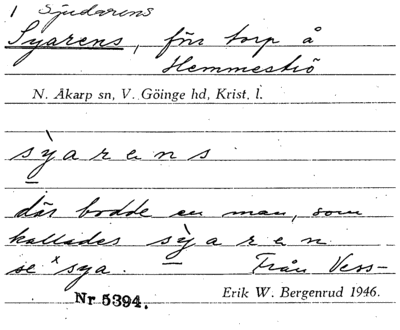 1 Sjudarens
Syarens, förr torp å
Hemmeströ
N. Åkarp sn, V. Göinge hd, Krist. l.
sỳarens
där bodde en man, som
kallades sỳaren
se ˣsya. Från Vess-
Nr 5394. Erik W. Bergenrud 1946.